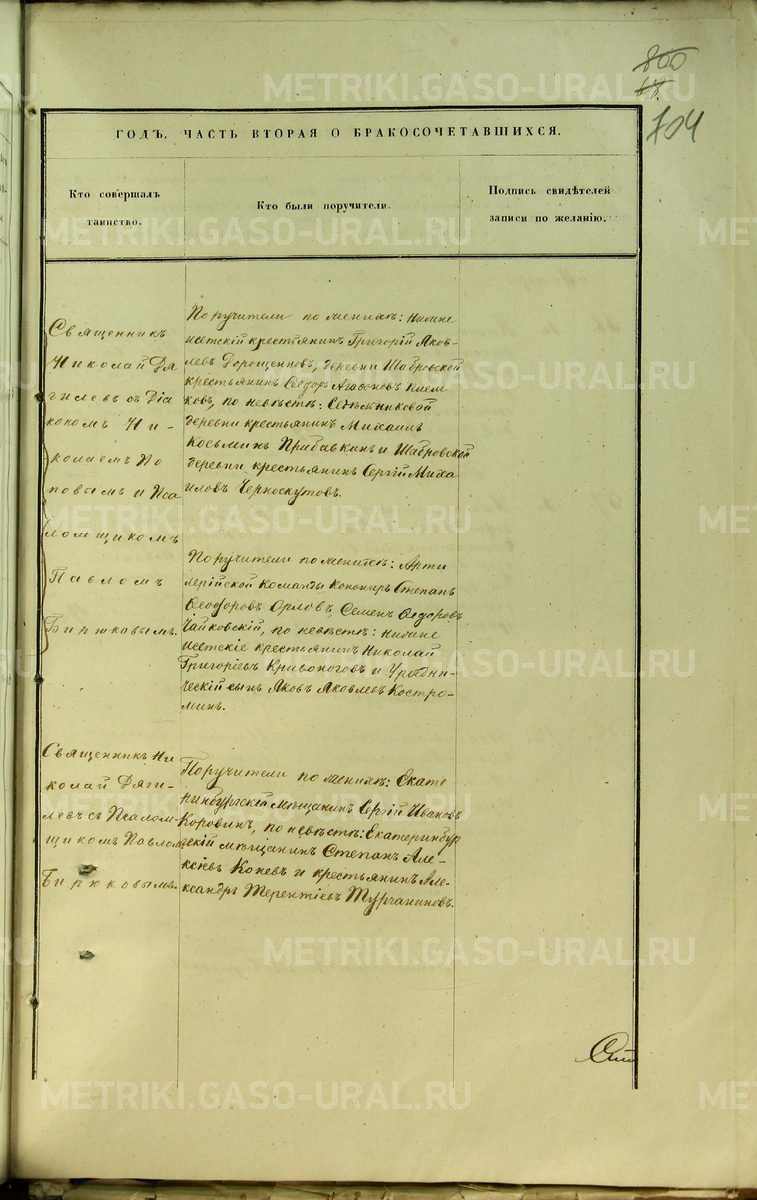 800
68.
104
ГОДЪ, ЧАСТЬ ВТОРАЯ О БРАКОСОЧЕТАВШИХСЯ.
Кто совершалъ
таинство.
Кто были поручители.
Подпись свидѣтелей
записи по желанію.
Священникъ
Николай Дя
гилевъ съ Діа
кономъ Ни-
колаемъ По
повымъ и Пса
ломщикомъ
Павломъ
Бирюковымъ.
Поручители по женихѣ: Нижне
исетскій крестьянинъ Григорій Яков-
левъ Дорощенковъ, деревни Шабровской
крестьянинъ Ѳедоръ
ковъ, по невѣстѣ: Седельниковой
деревни крестьянинъ Михаилъ
Козьминъ Прибавкинъ и Шабровской
деревни крестьянинъ Сергій Миха
иловъ Черноскутовъ.
Поручители по женихѣ: Арти
лерійской команды Канониръ Степанъ
Ѳеодоровъ Орловъ, Семенъ Ѳедоровъ
Чайковскій, по невѣстѣ: Нижне
Исетскіе крестьянинъ Николай
Григоріевъ Кривоноговъ и Урядни-
ческій сынъ Яковъ Яковлевъ Костро-
минъ.
Священникъ Ни
колай Дяги-
левъ съ Псалом-
щикомъ Павломъ
Бирюковымъ.
Поручители по женихѣ: Екате
ринбургскій мѣщанинъ Сергій Ивановъ
Коровинъ, по невѣстѣ: Екатеринбур
гскій мѣщанинъ Степанъ Але-
ксѣевъ Коневъ и крестьянинъ Але-
ксандръ Терентіевъ Турчаниновъ.
METRIKI.GASO-URAL.RU